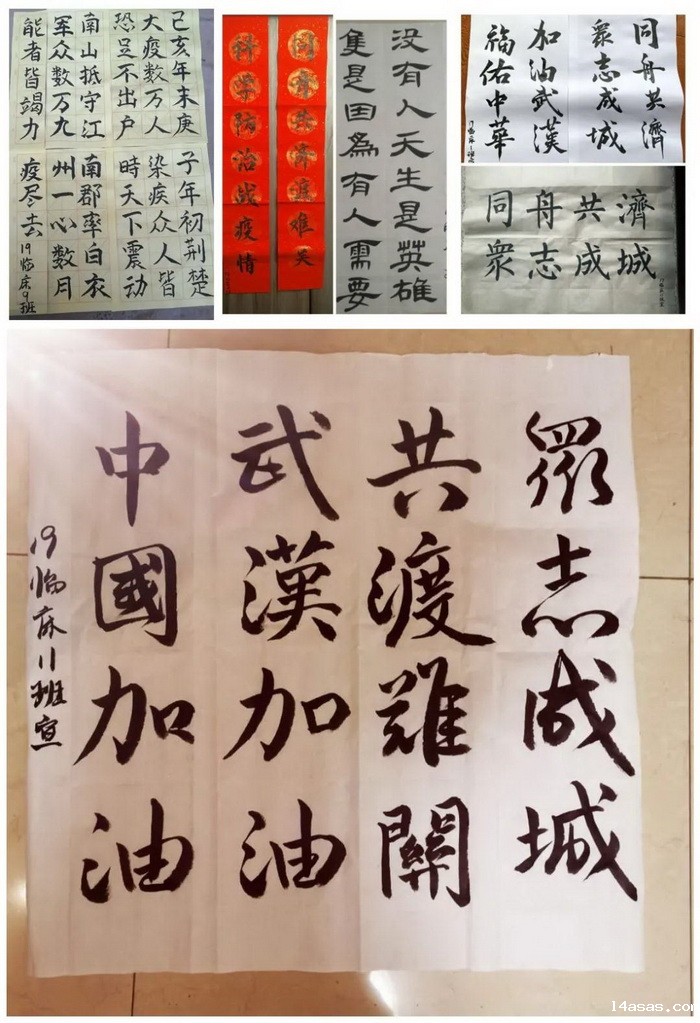 己亥年末庚子年初荆楚
大疫数万人染疾众人皆
恐足不出户時天下震动
南山抵守江南郡率白衣
军众数万九州一心数月
能者皆竭力疫尽去
19临床9班
同舟共濟渡难关
科学防治战疫情
没有人天生是英雄
隻是因為有人需要
同舟共濟
眾志成城
加油武漢
福佑中華
同舟共濟
眾志成城
眾志成城
共渡難關
武漢加油
中國加油
19临床11班宣
14asas.com